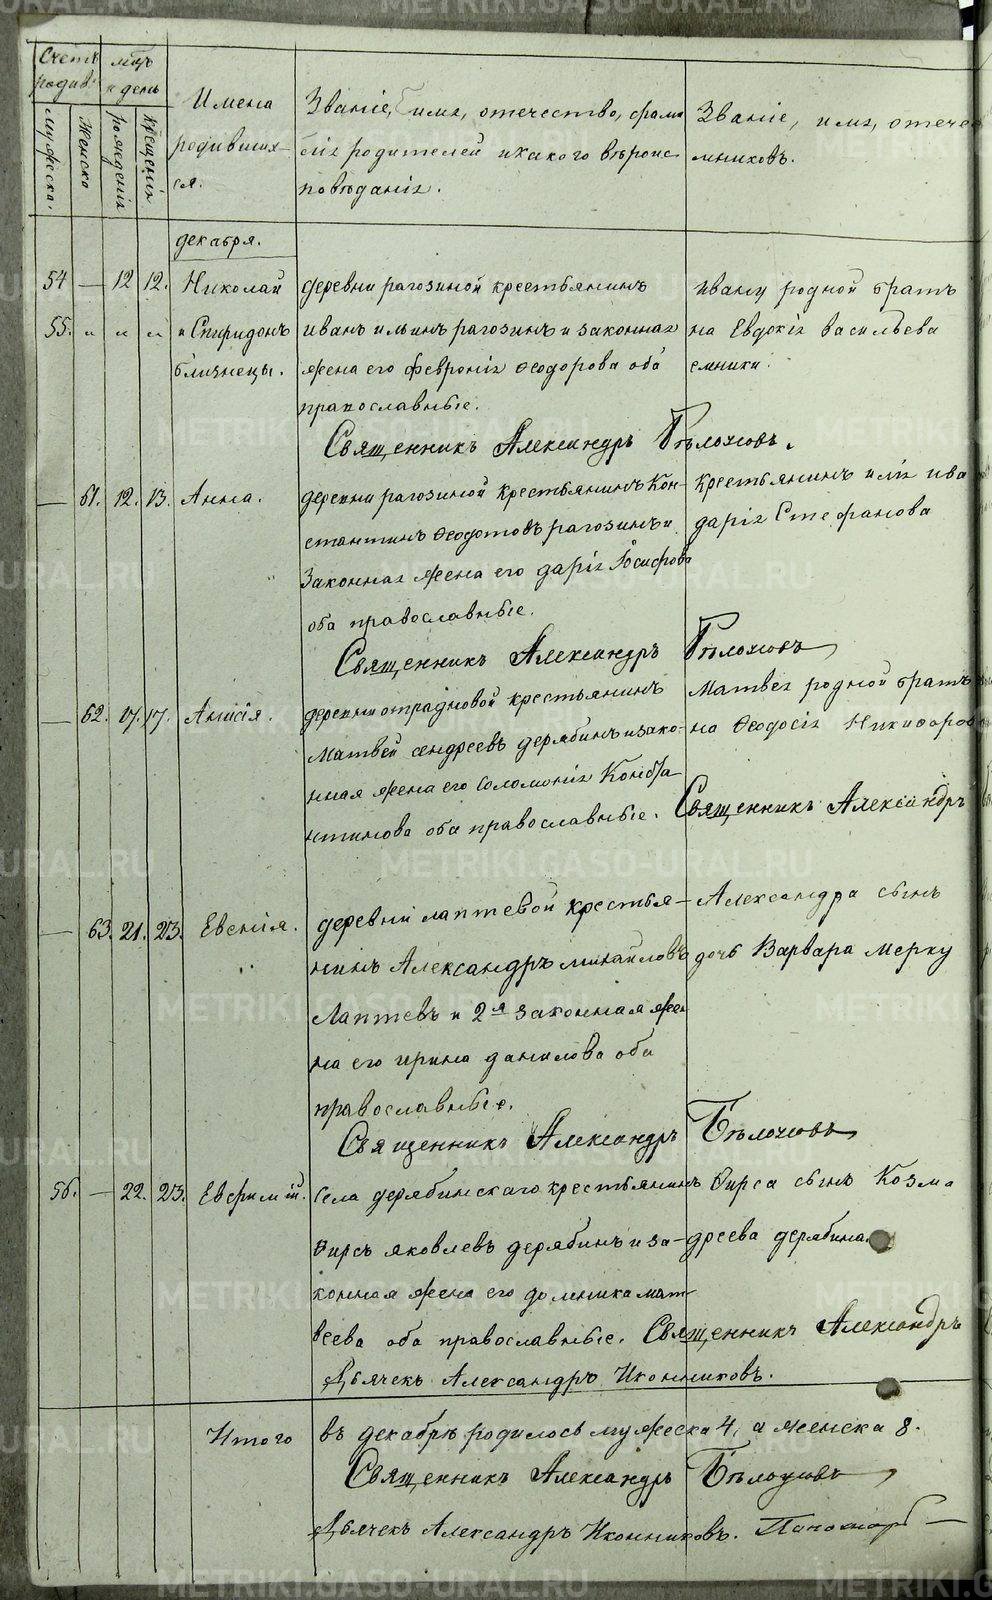 Счетъ родив.
мужеска.
женска
мѣц. и день
рожденія
крещенія
Имена
родивших-
ся.
Званіе, имя, отечество, фами
лія родителей и какого вѣроис
повѣданія.
Званіе, имя, отече
мниковъ.
декабря.
54 — 12 12. Николай деревни рагозиной крестьянинъ Ивану родной братъ
55. " " " и Спиридонъ иванъ ильинъ рагозинъ и законная на Евдокія васильева
близнецы. жена его феврония ѳеодорова оба емники.
православные.
Священникъ Александръ Бѣлоусовъ.
— 61. 12. 13. Анна. деревни рагозиной крестьянинъ Кон- крестьянинъ илія ива
стантинъ ѳеодотовъ рагозинъ и дарія Стефанова
законная жена его дарія Іосифова
оба православные.
Священникъ Александръ Бѣлоусовъ
— 62. 17. 17. Анисія. деревни отрадновой крестьянинъ Матвея родной братъ
Матвей андреевъ дерябинъ и зако- на Ѳеодосія Никифоров
нная жена его Соломонія Конста
нтинова оба православные. Священникъ Александръ
— 63. 21. 23. Евгенія. деревни лаптевой крестья- Александра сынъ
нинъ Александръ михайловъ дочь Варвара мерку
Лаптевъ и 2я законная же
на его ирина данилова оба
православные.
Священникъ Александръ Бѣлоусовъ
56. — 22. 23. Евфимій. села дерябинскаго крестьянинъ Ѳирса сынъ Козма
Ѳирсъ яковлевъ дерябинъ и за- дреева дерябина.
конная жена его домника мат-
веева оба православные. Священникъ Александръ
Дьячекъ Александръ Иконниковъ.
Итого въ декабрѣ родилось мужеска 4, а женска 8.
Священникъ Александръ Бѣлоусовъ
Дьячекъ Александръ Иконниковъ. Пономарь —